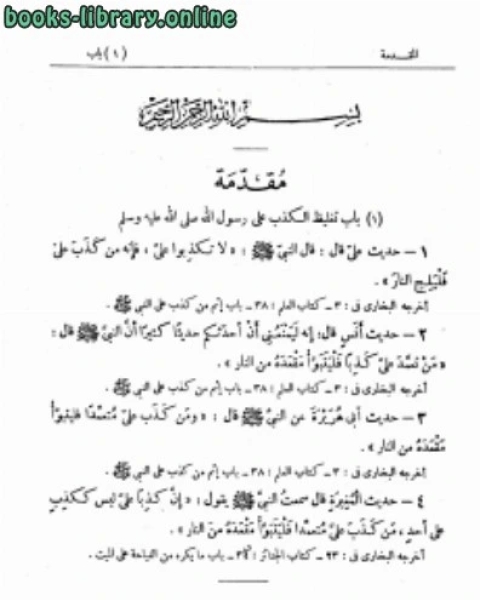 books-library.online
المقدمة (١) باب
بسم الله الرحمن الرحيم
مُقَدِّمَة
(١) باب تغليظ الكذب على رسول الله صلى الله عليه وسلم
١ – حديث عليّ قال : قال النبيّ ﷺ : « لا تكذبوا عليّ ، فإنه من كَذَبَ عليّ
فَلْيَلِجِ النارَ » .
أخرجه البخارى فى : ٣ – كتاب العلم : ٣٨ – باب إثم من كذب على النبي ﷺ .
٢ – حديث أَنَسٍ قال : إنه لَيَمْنَعُنِي أَنْ أُحدّثكم حديثًا كثيرًا أنَّ النبيَّ ﷺ قال :
« مَنْ تَعَمَّدَ عليّ كَذِبًا فَلْيَتَبَوَّأْ مَقْعَدَهُ من النار » .
أخرجه البخارى فى : ٣ – كتاب العلم : ٣٨ – باب إثم من كذب على النبي ﷺ .
٣ – حديث أبى هُرَيْرَةَ عن النبيّ ﷺ قال : « ومَن كَذَبَ عليّ مُتعمِّدًا فليتبوَّأْ
مَقْعَدَهُ من النار » .
أخرجه البخارى فى : ٣ – كتاب العلم : ٣٨ – باب إثم من كذب على النبي ﷺ .
٤ – حديث المُغِيرَةِ قال سمعتُ النبيَّ ﷺ يقول : « إنَّ كَذِبًا عليّ ليس كَكَذِبٍ
على أحدٍ ، مَن كَذَبَ عليّ مُتعمِّدًا فَلْيَتَبَوَّأْ مَقْعَدَهُ من النار » .
أخرجه البخارى فى : ٢٣ – كتاب الجنائز : ٣٤ – باب ما يكره من النياحة على الميت .